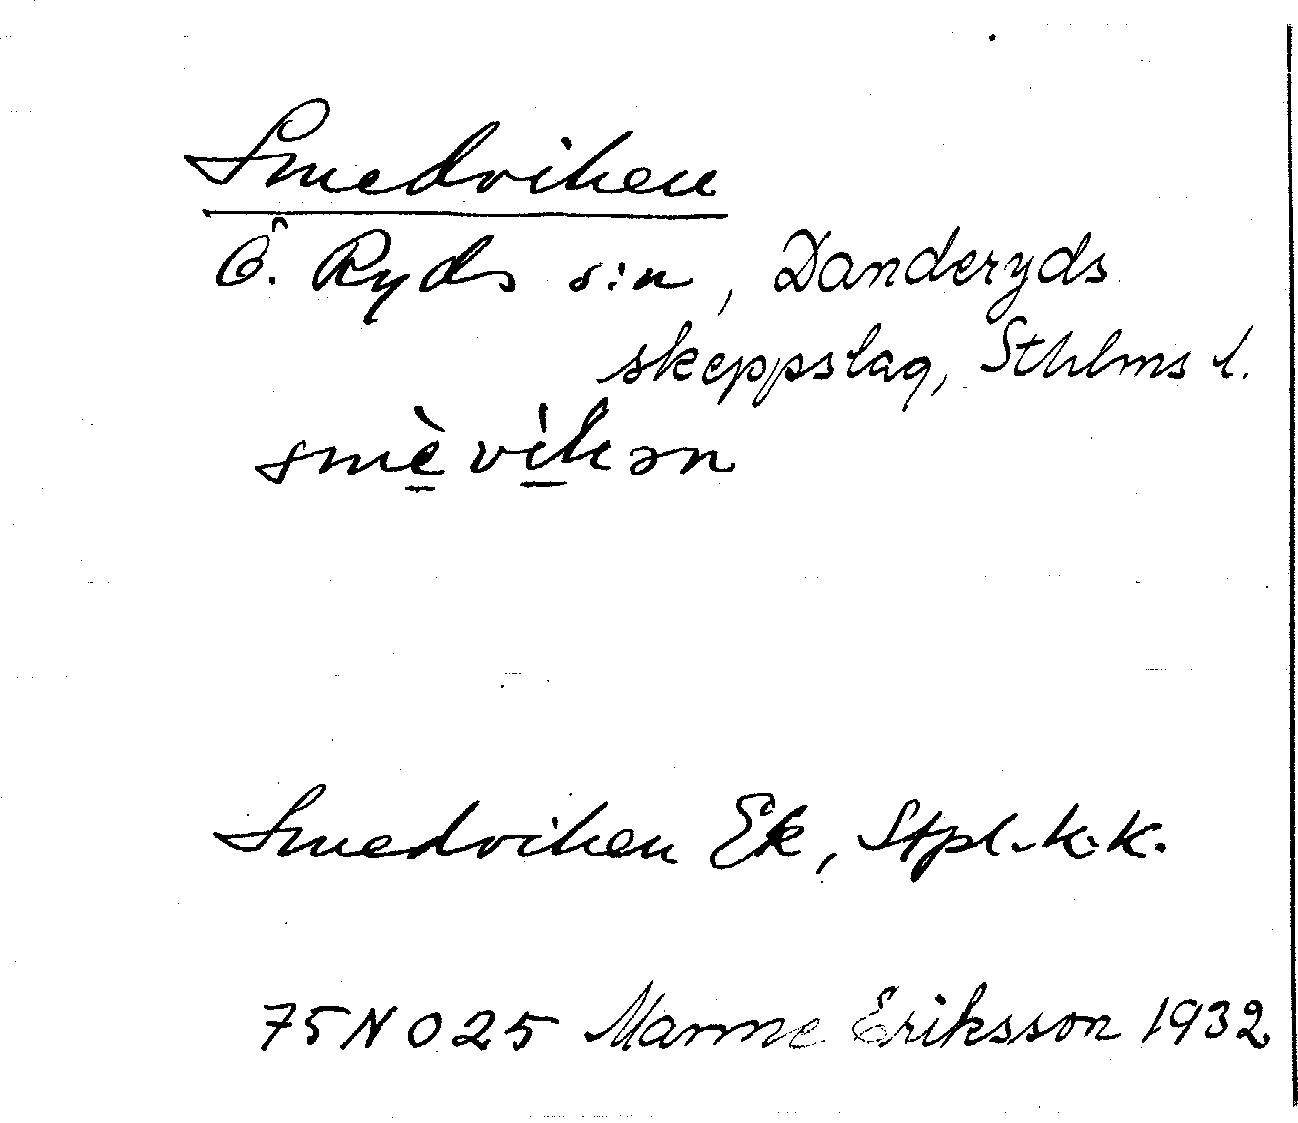 Smedviken
Ö. Ryds s:n, Danderyds
skeppslag, Sthlms l.
smè̱vi̱kən
Smedviken Ek, Stpl. k.k.
75 NO 25 Manne Eriksson 1932